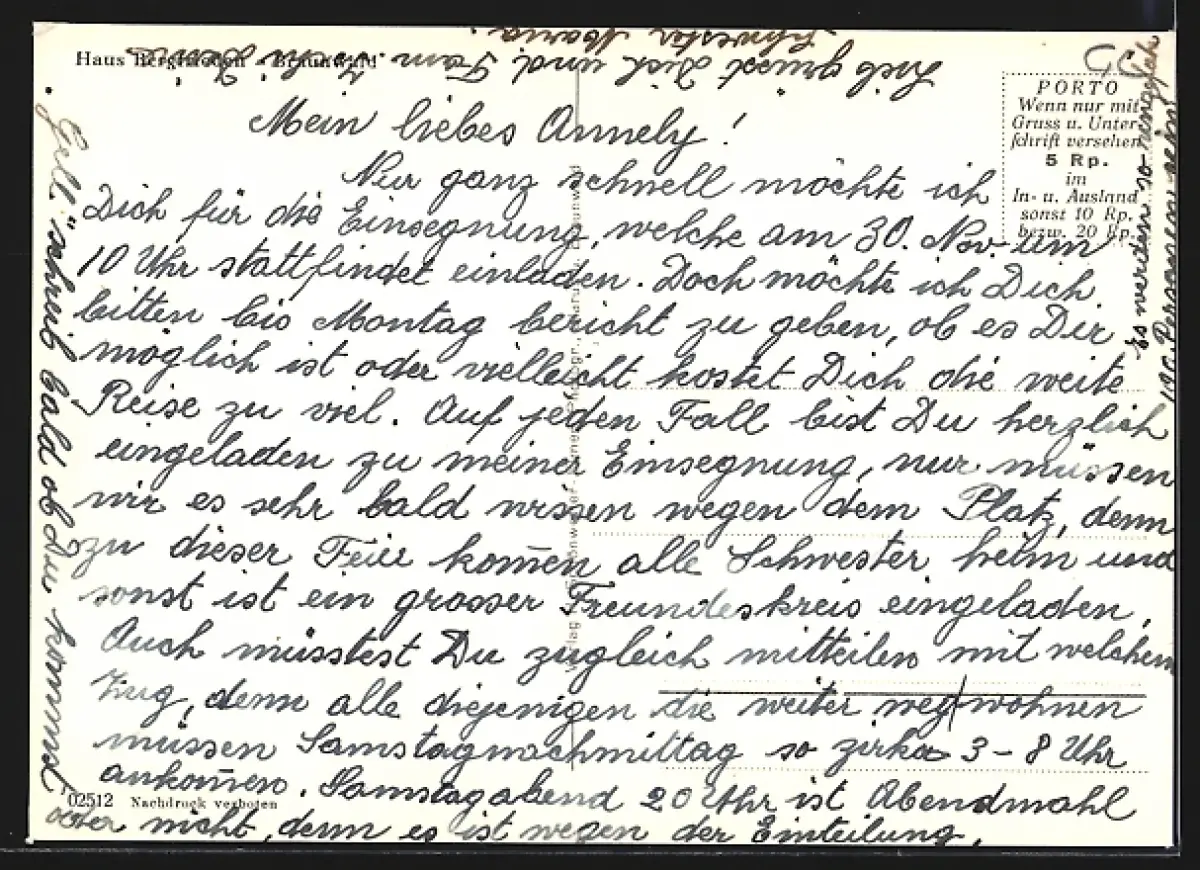 Haus Bergfrieden - Braunwald
Mein liebes Annely!
Nur ganz schnell möchte ich
Dich für die Einsegnung, welche am 30. Nov. um
10 Uhr stattfindet einladen. Doch möchte ich Dich
bitten bis Montag bericht zu geben, ob es Dir
möglich ist oder vielleicht kostet Dich die weite
Reise zu viel. Auf jeden Fall bist Du herzlich
eingeladen zu meiner Einsegnung, nur müssen
wir es sehr bald wissen wegen dem Platz, denn
zu dieser Feier kom̄en alle Schwester heim und
sonst ist ein grosser Freundeskreis eingeladen.
Auch müsstest Du zugleich mitteilen mit welchem
Zug, denn alle diejenigen die weiter weg wohnen
müssen Samstagnachmittag so zirka 3-8 Uhr
ankom̄en. Samstagabend 20 Uhr ist Abendmahl
Gell schreib bald ob Du kommst
oder nicht, denn es ist wegen der Einteilung.
Es werden so ungefähr
100 Personen
Lieb grüsst Dich und Fam.
Schwester Maria
PORTO
Wenn nur mit
Gruss u. Unter-
schrift versehen
5 Rp.
im
In- u. Ausland
sonst 10 Rp.
bezw. 20 Rp.
02512 Nachdruck verboten